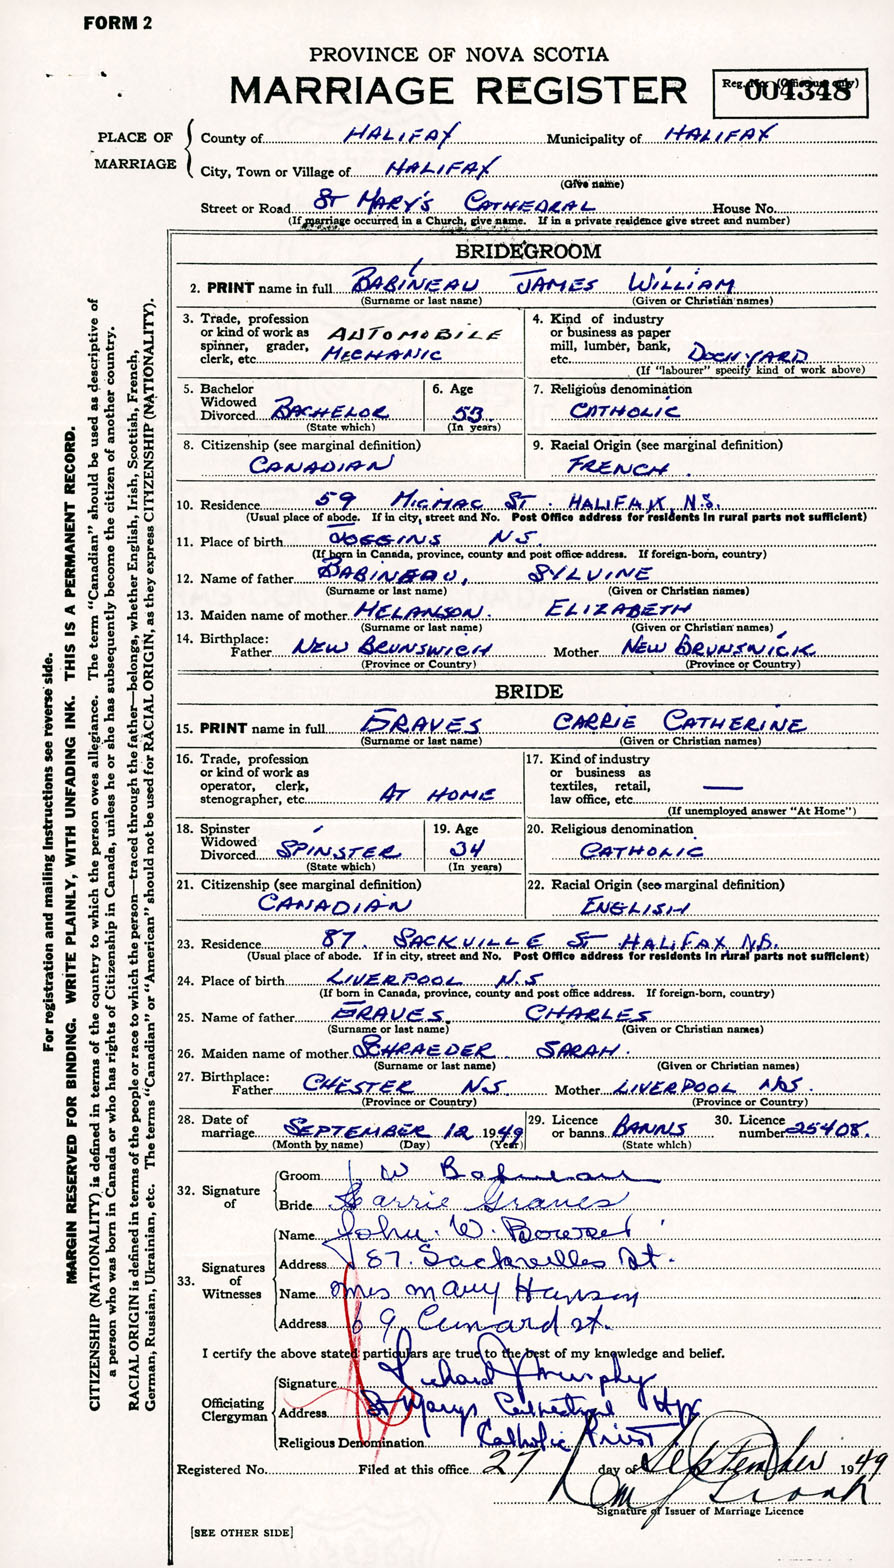 FORM 2
PROVINCE OF NOVA SCOTIA
MARRIAGE REGISTER
Reg. No. (Office use only)
004348
PLACE OF MARRIAGE
County of HALIFAX Municipality of HALIFAX
City, Town or Village of HALIFAX
(Give name)
Street or Road ST MARY'S CATHEDRAL House No.
(If marriage occurred in a Church, give name. If in a private residence give street and number)
BRIDEGROOM
2. PRINT name in full BABINEAU JAMES WILLIAM
(Surname or last name) (Given or Christian names)
3. Trade, profession or kind of work as spinner, grader, clerk, etc. AUTOMOBILE MECHANIC
4. Kind of industry or business as paper mill, lumber, bank, etc. DOCKYARD
(If "labourer" specify kind of work above)
5. Bachelor Widowed Divorced BACHELOR
(State which)
6. Age 53
(In years)
7. Religious denomination
CATHOLIC
8. Citizenship (see marginal definition)
CANADIAN
9. Racial Origin (see marginal definition)
FRENCH.
10. Residence 59 MICMAC ST. HALIFAX, N.S.
(Usual place of abode. If in city, street and No. Post Office address for residents in rural parts not sufficient)
11. Place of birth JOGGINS N.S.
(If born in Canada, province, county and post office address. If foreign-born, country)
12. Name of father BABINEAU, SYLVINE
(Surname or last name) (Given or Christian names)
13. Maiden name of mother MELANSON. ELIZABETH
(Surname or last name) (Given or Christian names)
14. Birthplace:
Father NEW BRUNSWICK Mother NEW BRUNSWICK
(Province or Country) (Province or Country)
BRIDE
15. PRINT name in full GRAVES CARRIE CATHERINE
(Surname or last name) (Given or Christian names)
16. Trade, profession or kind of work as operator, clerk, stenographer, etc. AT HOME
17. Kind of industry or business as textiles, retail, law office, etc. —
(If unemployed answer "At Home")
18. Spinster Widowed Divorced SPINSTER
(State which)
19. Age 34
(In years)
20. Religious denomination
CATHOLIC
21. Citizenship (see marginal definition)
CANADIAN
22. Racial Origin (see marginal definition)
ENGLISH
23. Residence 87. SACKVILLE ST HALIFAX N.S.
(Usual place of abode. If in city, street and No. Post Office address for residents in rural parts not sufficient)
24. Place of birth LIVERPOOL N.S
(If born in Canada, province, county and post office address. If foreign-born, country)
25. Name of father GRAVES CHARLES
(Surname or last name) (Given or Christian names)
26. Maiden name of mother SCHRAEDER SARAH.
(Surname or last name) (Given or Christian names)
27. Birthplace:
Father CHESTER N.S. Mother LIVERPOOL N.S.
(Province or Country) (Province or Country)
28. Date of marriage SEPTEMBER 12 1949
(Month by name) (Day) (Year)
29. Licence or banns BANNS
(State which)
30. Licence number 25408.
32. Signature of
Groom J W Babineau
Bride Carrie Graves
33. Signatures of Witnesses
Name John. W. Bowser
Address 87. Sackville St.
Name Mrs Mary Hanson
Address 69 Cunard st.
I certify the above stated particulars are true to the best of my knowledge and belief.
Officiating Clergyman
Signature Richard J Murphy
Address St Marys Cathedral Hfx
Religious Denomination Catholic Priest.
Registered No. Filed at this office 27 day of September 1949
Signature of Issuer of Marriage Licence
[SEE OTHER SIDE]
For registration and mailing instructions see reverse side.
MARGIN RESERVED FOR BINDING. WRITE PLAINLY, WITH UNFADING INK. THIS IS A PERMANENT RECORD.
CITIZENSHIP (NATIONALITY) is defined in terms of the country to which the person owes allegiance. The term "Canadian" should be used as descriptive of
a person who was born in Canada or who has rights of Citizenship in Canada, unless he or she has subsequently become the citizen of another country.
RACIAL ORIGIN is defined in terms of the people or race to which the person—traced through the father—belongs, whether English, Irish, Scottish, French,
German, Russian, Ukrainian, etc. The terms "Canadian" or "American" should not be used for RACIAL ORIGIN, as they express CITIZENSHIP (NATIONALITY).